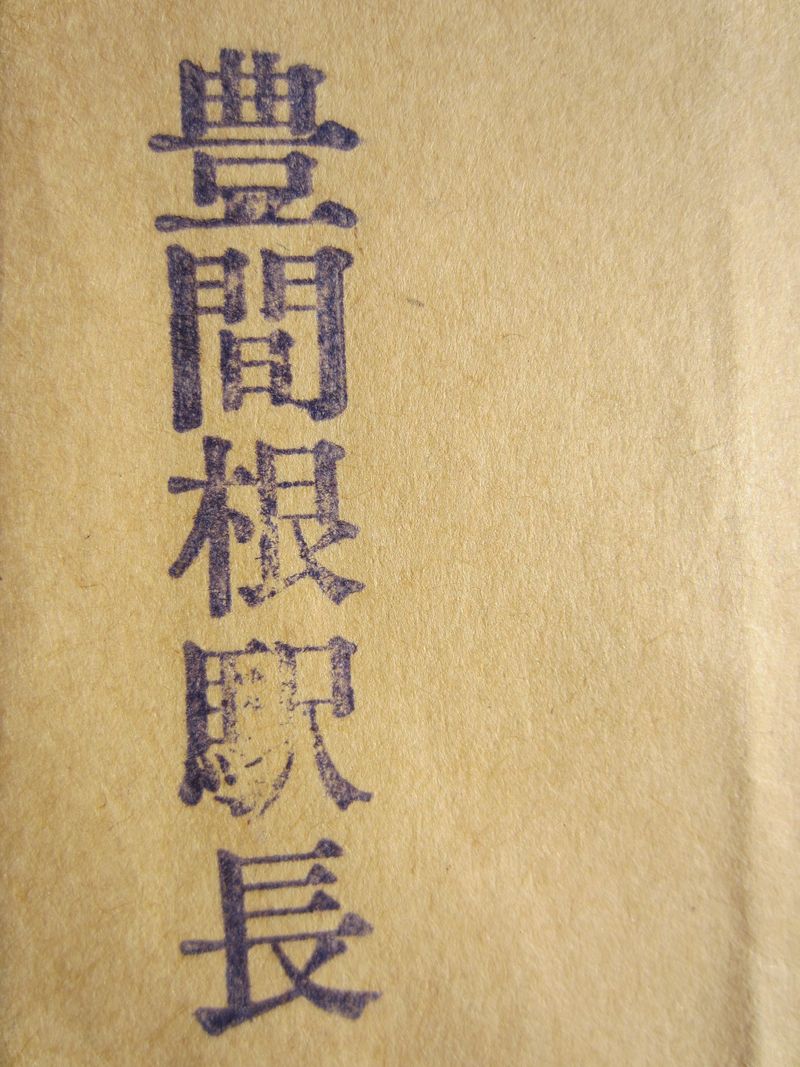 豊間根駅長